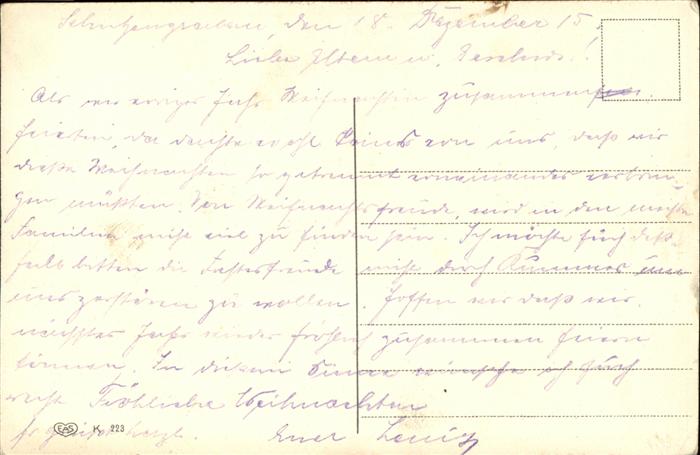 Schützengraben, den 18. Dezember 15,
Liebe Eltern u. Geschw.!
Als wir voriges Jahr Weihnachten zusammen
feierten, da dachte wohl keins von uns, daß wir
diese Weihnachten so getrennt voneinander verbrin-
gen müßten. Von Weihnachtsfreude wird in den meisten
Familien nicht viel zu finden sein. Ich möchte Euch des-
halb bitten die Festesfreude nicht durch Kummer um
uns zerstören zu wollen. Hoffen wir daß wir
nächstes Jahr wieder fröhlich zusammen feiern
können. In diesem Sinne wünsche ich Euch
recht Fröhliche Weihnachten
Euer
EAS K 223